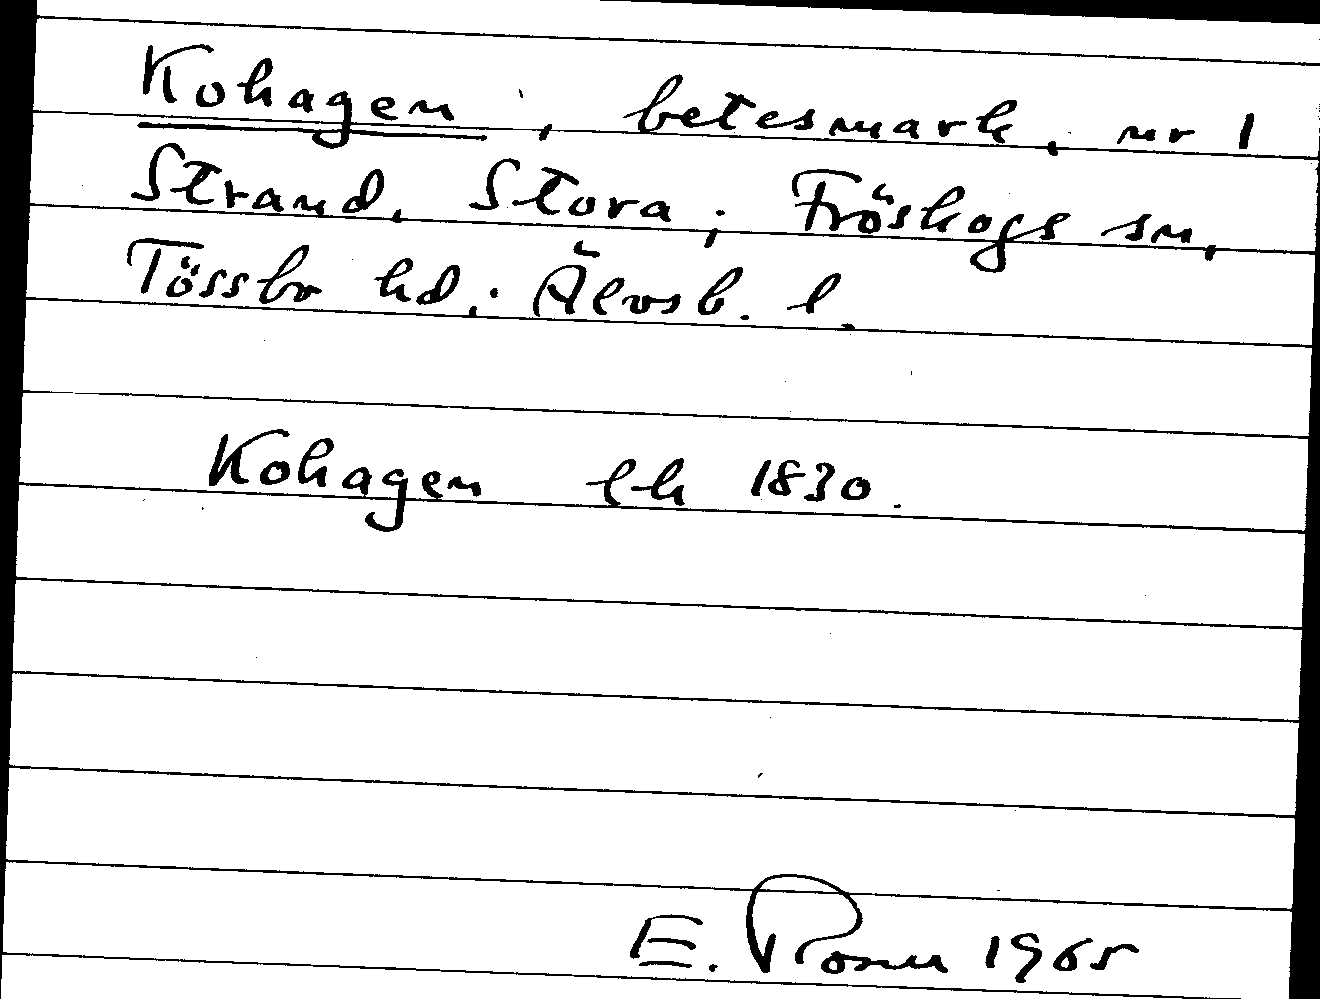 Kohagen, betesmark, nr 1
Strand, Stora; Fröskogs sn,
Tössbo hd; Älvsb. l.
Kohagen lh 1830.
E. 1965